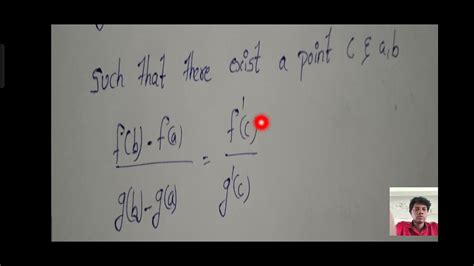 Such that there exist a point C ∈ a,b
f(b) - f(a) / g(b) - g(a) = f'(c) / g'(c)